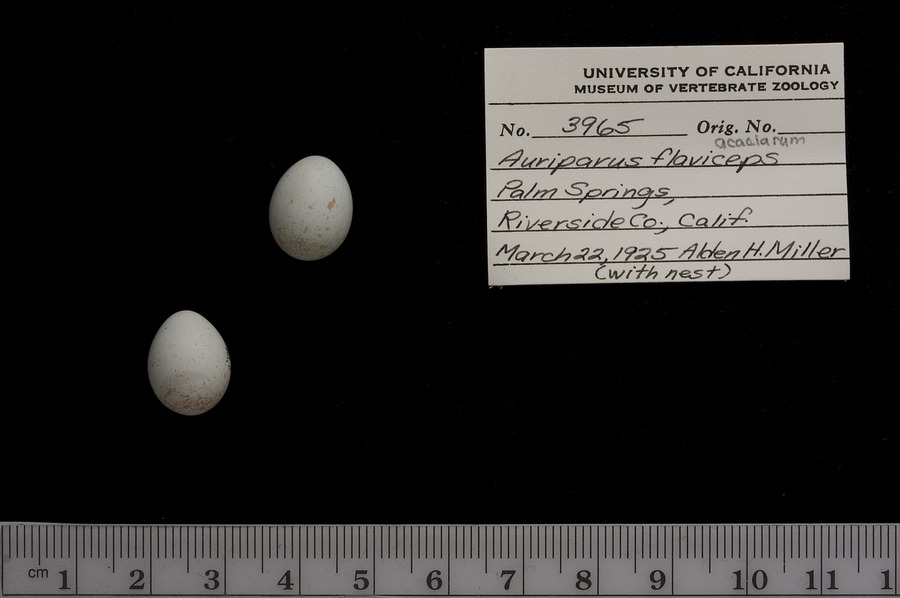 UNIVERSITY OF CALIFORNIA
MUSEUM OF VERTEBRATE ZOOLOGY
No. 3965 Orig. No.
acaciarum
Auriparus flaviceps
Palm Springs,
Riverside Co., Calif.
March 22, 1925 Alden H. Miller
(with nest)
cm 1 2 3 4 5 6 7 8 9 10 11 1